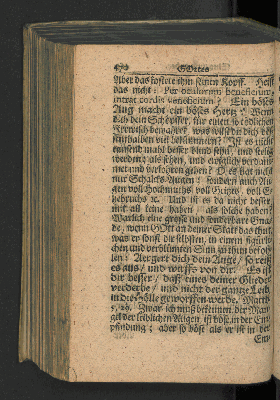 470 GOttes
Aber das kostete ihm seinen Kopff. Heist
das nicht: Per oculorum beneficium,
intrat cordis veneficium? Ein böses
Aug macht ein böses Hertz? Wenn
dich dein Schöpffer, für einen
bewahret, was willst du dich des
halben viel bekümmern? Ist es nicht
tausend mahl besser blind seyn, und selig
werden; als sehen, und ewiglich verdam-
met und verlohren gehen? O, es hat nicht
nur Schalcks-Augen! sondern auch Au-
gen voll Hochmuths, voll Geitzes, voll E-
hebruchs ꝛc. Und ist es da nicht besser
gar keine haben, als solche haben?
Warlich eine grosse und sonderbare Gna-
de, wenn GOtt an deiner Statt das thut,
was er sonst dir selbsten, in einem figürli-
chen und verblümten Sinn zu thun befoh-
len: Aergert dich dein Auge, so reiß
es aus, und wirffs von dir. Es ist
dir besser, daß eines deiner Glieder
verderbe, und nicht der gantze Leib
in die Hölle geworffen werde. Matth.
5, 29. Zwar ich muß bekennen, der Man-
gel der leiblichen Augen ist böß in der Em-
pfindung; aber so böse als er ist in der
Em-